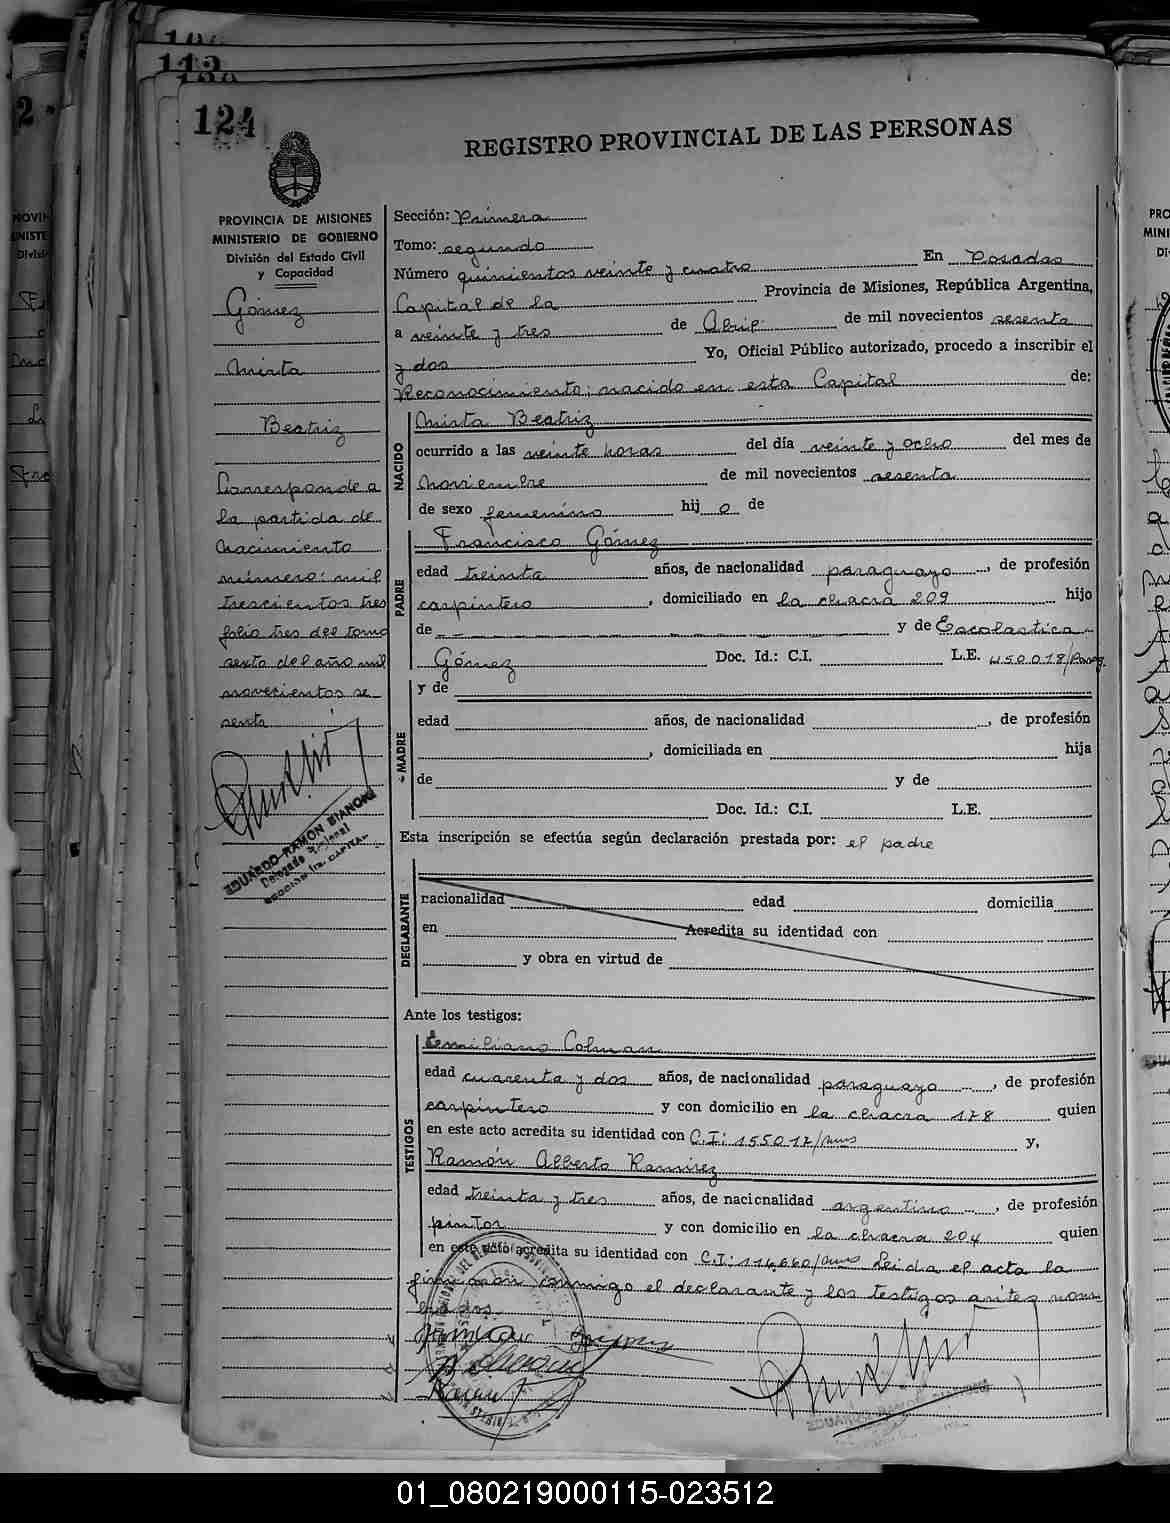 113
124
REGISTRO PROVINCIAL DE LAS PERSONAS
PROVINCIA DE MISIONES
MINISTERIO DE GOBIERNO
División del Estado Civil
y Capacidad
Gómez
Mirta
Beatriz
Corresponde a
la partida de
nacimiento
número: mil
trescientos tres
folio tres del tomo
sexto del año mil
novecientos se-
senta
EDUARDO RAMON BIANCHI
Delegado Regional
Sección: Primera
Tomo: segundo
Número quinientos veinte y cuatro En Posadas
Capital de la Provincia de Misiones, República Argentina,
a veinte y tres de Abril de mil novecientos sesenta
y dos Yo, Oficial Público autorizado, procedo a inscribir el
Reconocimiento; nacido en esta Capital de:
NACIDO
Mirta Beatriz
ocurrido a las veinte horas del día veinte y ocho del mes de
Noviembre de mil novecientos sesenta
de sexo femenino hij o de
PADRE
Francisco Gómez
edad treinta años, de nacionalidad paraguayo, de profesión
carpintero, domiciliado en la chacra 209 hijo
de y de Escolastica
Gómez Doc. Id.: C.I. L.E. 450018/Parag.
MADRE
y de
edad años, de nacionalidad, de profesión
, domiciliada en hija
de y de
Doc. Id.: C.I. L.E.
Esta inscripción se efectúa según declaración prestada por: el padre
DECLARANTE
nacionalidad edad domicilia
en Acredita su identidad con
y obra en virtud de
Ante los testigos:
TESTIGOS
Emiliano Colman
edad cuarenta y dos años, de nacionalidad paraguayo, de profesión
carpintero y con domicilio en la chacra 178 quien
en este acto acredita su identidad con C.I: 155017/Mns y,
Ramón Alberto Ramirez
edad treinta y tres años, de nacionalidad argentino, de profesión
pintor y con domicilio en la chacra 204 quien
en este acto acredita su identidad con C.I: 114,660/Mns Leida el acta la
firmaron conmigo el declarante y los testigos antes nom-
brados.
EDUARDO RAMON BIANCHI
01_080219000115-023512